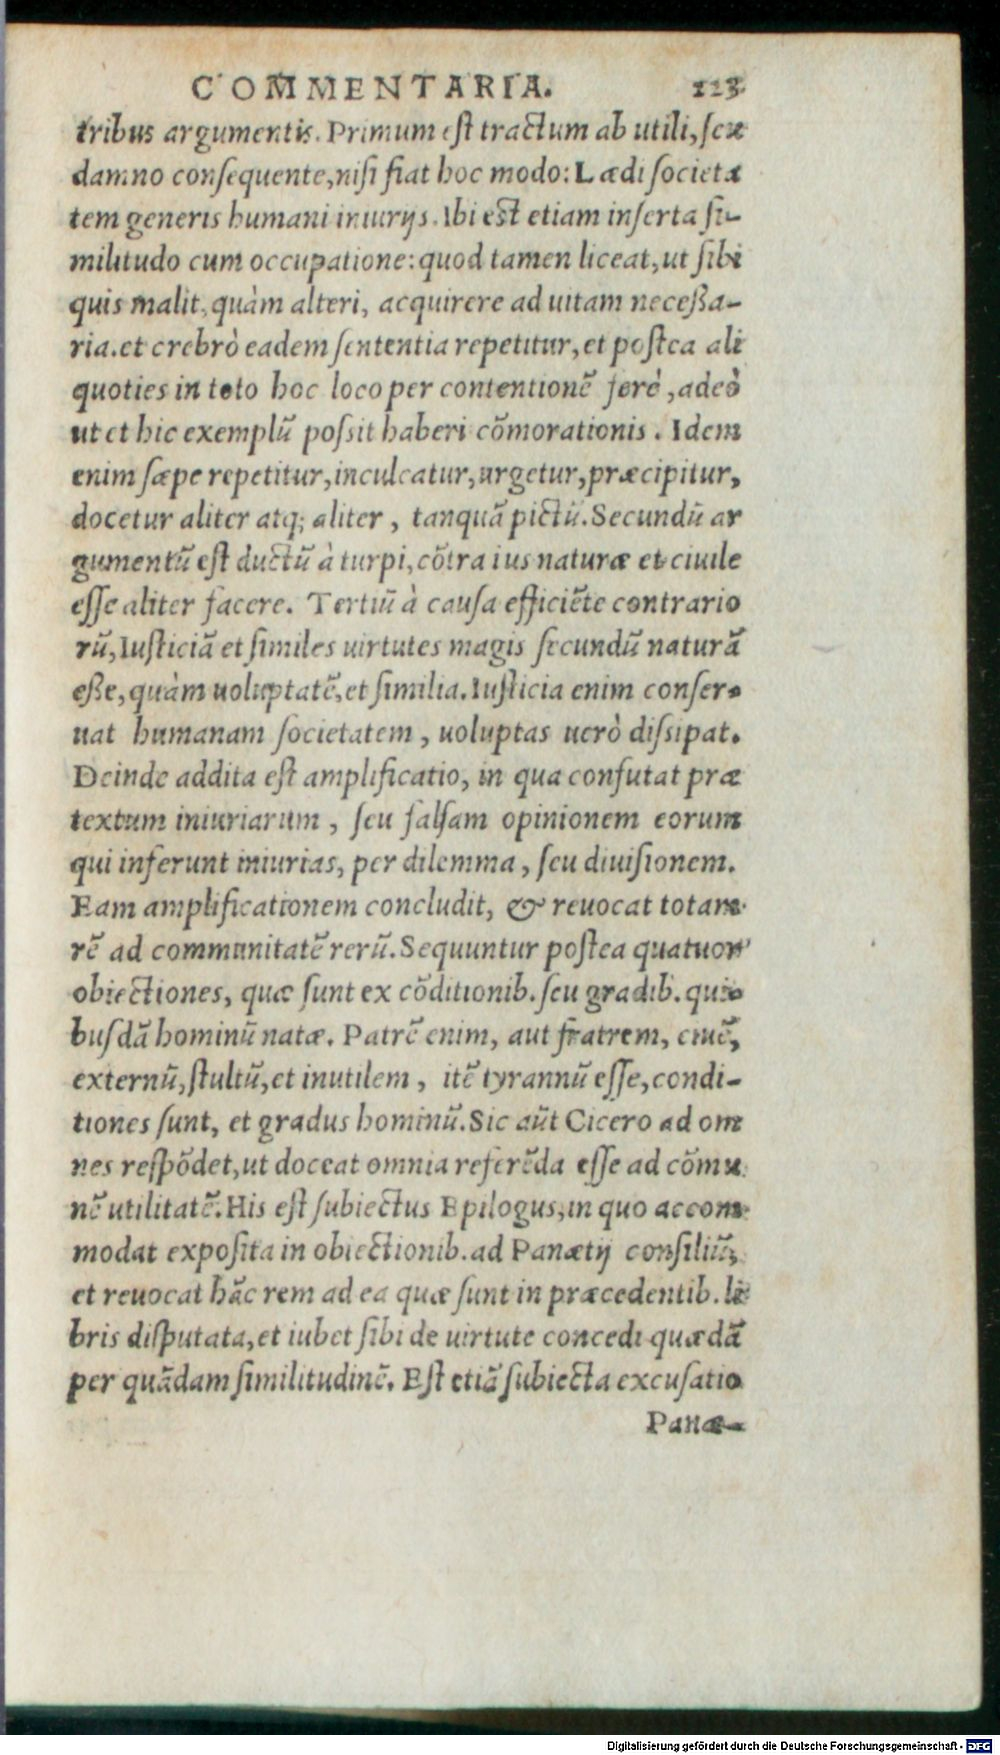 COMMENTARIA. 223
tribus argumentis. Primum est tractum ab utili, seu
damno consequente, nisi fiat hoc modo: Lædi societa
tem generis humani iniurijs. Ibi est etiam inserta si-
militudo cum occupatione: quod tamen liceat, ut sibi
quis malit, quàm alteri, acquirere ad uitam necessa-
ria. et crebrò eadem sententia repetitur, et postea ali
quoties in toto hoc loco per contentionē ferè, adeò
ut et hic exemplū possit haberi cōmorationis. Idem
enim sæpe repetitur, inculcatur, urgetur, præcipitur,
docetur aliter atq; aliter, tanquā pictū. Secundū ar
gumentū est ductū à turpi, cōtra ius naturæ et ciuile
esse aliter facere. Tertiū à causa efficiēte contrario
rū, Iusticiā et similes uirtutes magis secundū naturā
esse, quàm uoluptatē, et similia. Iusticia enim conser-
uat humanam societatem, uoluptas uerò dissipat.
Deinde addita est amplificatio, in qua confutat præ
textum iniuriarum, seu falsam opinionem eorum
qui inferunt iniurias, per dilemma, seu diuisionem.
Eam amplificationem concludit, & reuocat totam
rē ad communitatē rerū. Sequuntur postea quatuor
obiectiones, quæ sunt ex cōditionib. seu gradib. qui-
busdā hominū natæ. Patrē enim, aut fratrem, ciuē,
externū, stultū, et inutilem, itē tyrannū esse, condi-
tiones sunt, et gradus hominū. Sic aūt Cicero ad om
nes respōdet, ut doceat omnia referēda esse ad cōmu
nē utilitatē. His est subiectus Epilogus, in quo accom
modat exposita in obiectionib. ad Panætij consiliū,
et reuocat hāc rem ad ea quæ sunt in præcedentib. li
bris disputata, et iubet sibi de uirtute concedi quædā
per quādam similitudinē. Est etiā subiecta excusatio
Panæ-
Digitalisierung gefördert durch die Deutsche Forschungsgemeinschaft - DFG